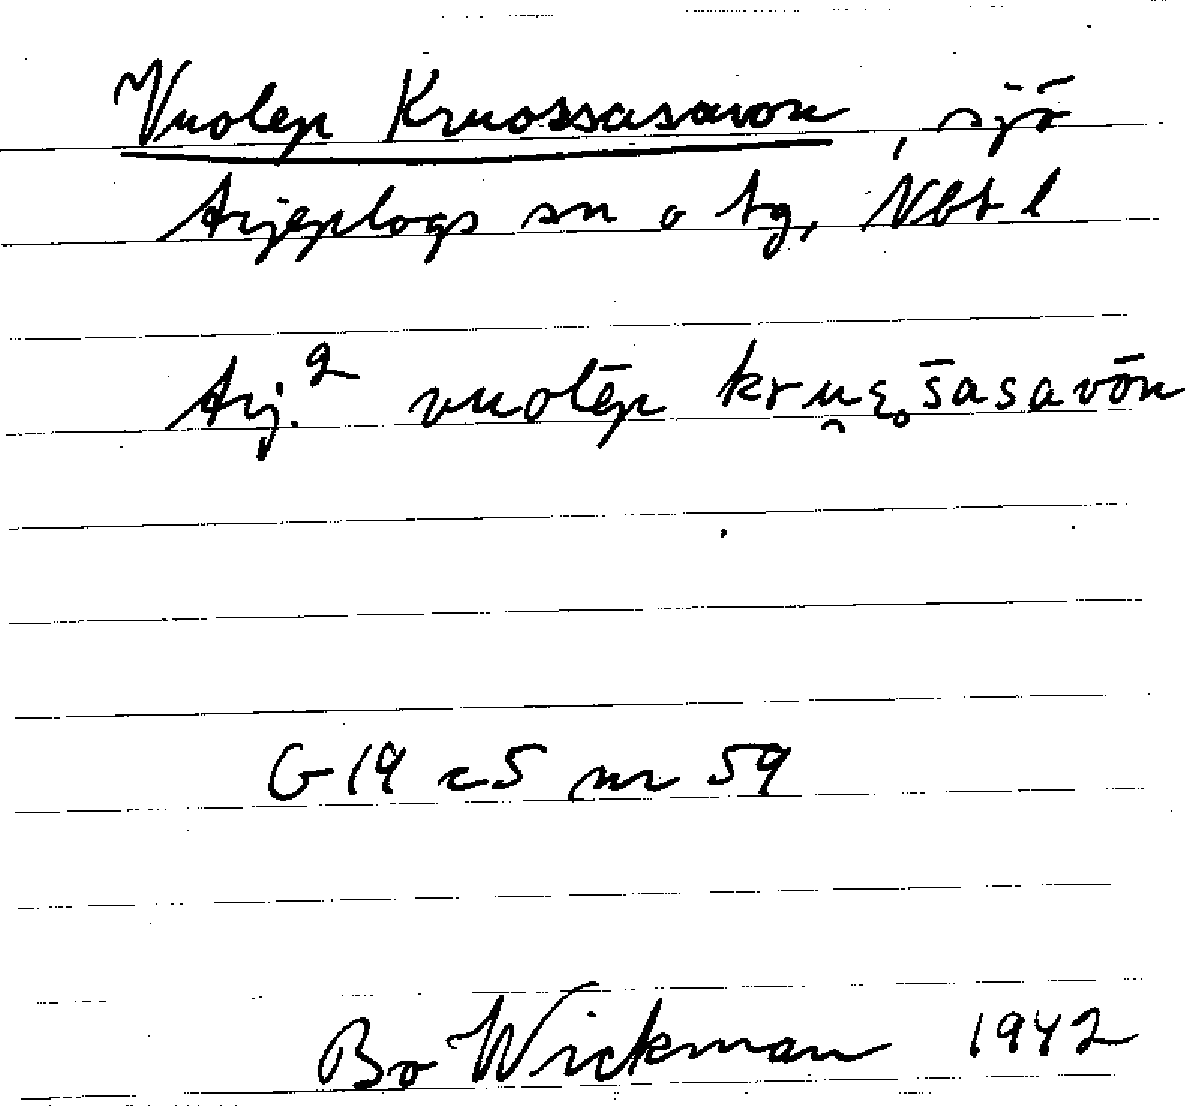 Vuolep Kruossasavon, sjö
Arjeplogs sn o tg, Nbt l
Arj.2 vuolēp
G 19 c5 nr 59
Bo Wickman 1942